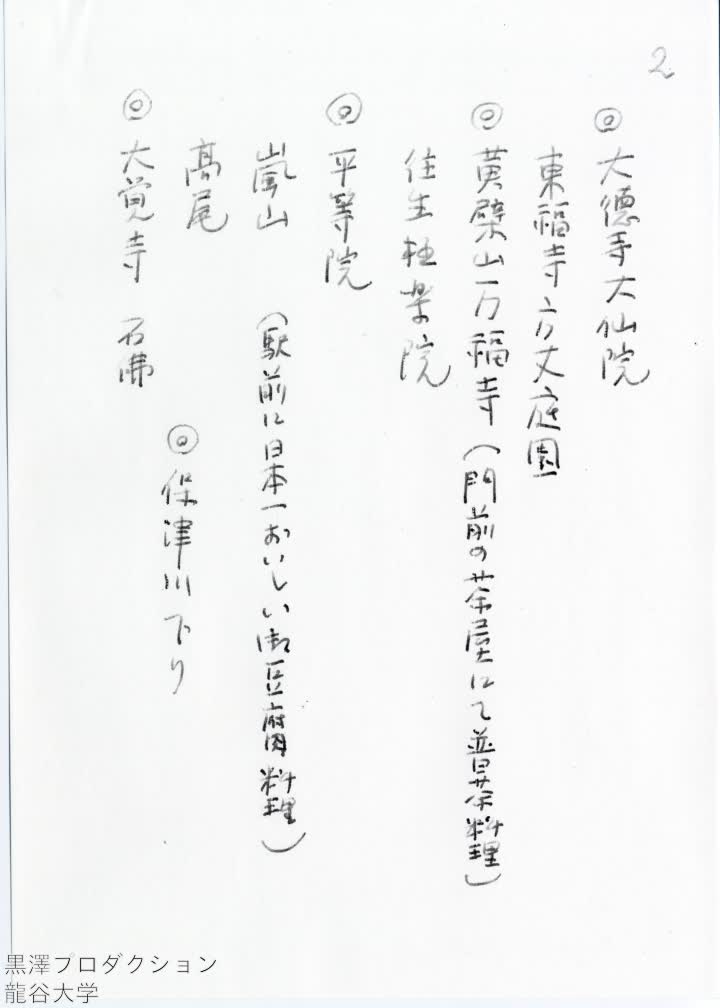 2
◎ 大徳寺大仙院
東福寺方丈庭園
◎ 黄檗山万福寺(門前の茶屋にて普茶料理)
往生極楽院
◎ 平等院
嵐山 (駅前に日本一おいしい御豆腐料理)
高尾
◎ 保津川下り
◎ 大覚寺 石佛
黒澤プロダクション
龍谷大学